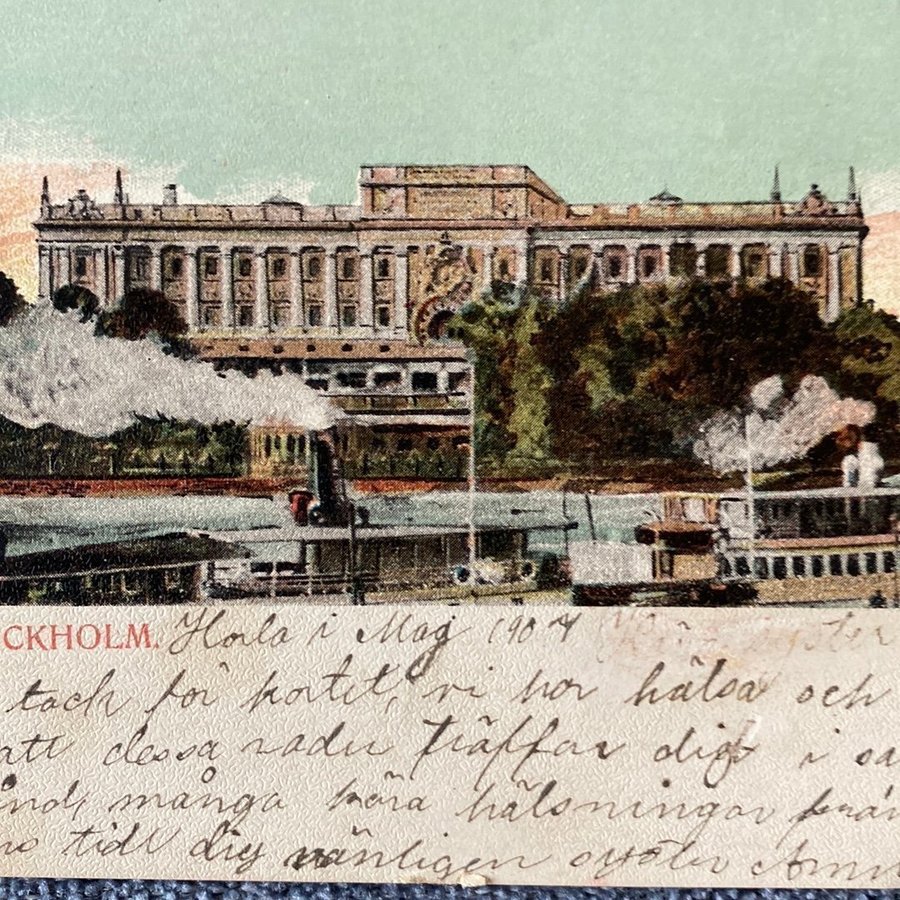 CKHOLM. Horla i Maj 1907
tack för kortet, vi har hälsa och
att dessa rader träffar dig i sa
många kära hälsningar från
till dig vänligen syster Ann